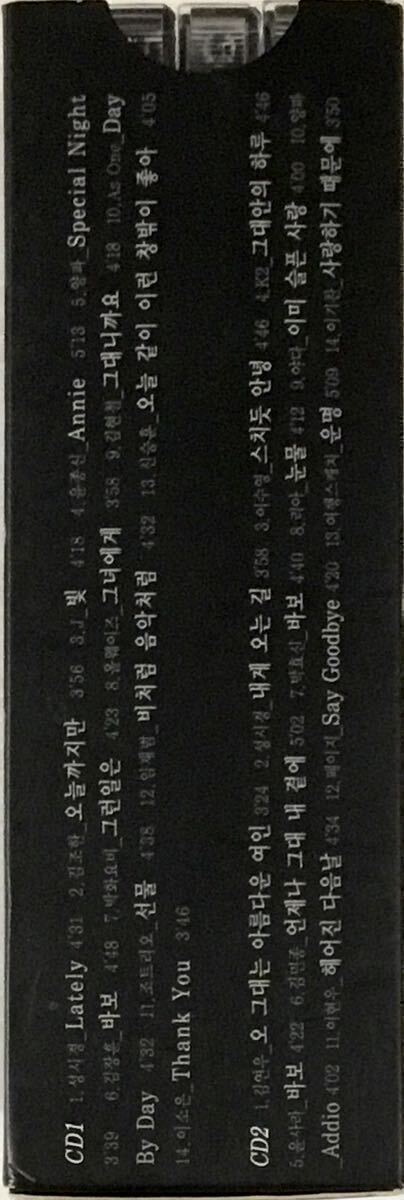 CD1 1.성시경_Lately 4'31 2.김조한_오늘까지만 3'56 3.J_빛 4'18 4.윤종신_Annie 5'13 5.양파_Special Night
3'39 6.김장훈_바보 4'48 7.박화요비_그런일은 4'23 8.올웨이즈_그녀에게 3'58 9.김현철_그대니까요 4'18 10.As One_Day
By Day 4'32 11.조트리오_선물 4'38 12.임재범_비처럼 음악처럼 4'32 13.신승훈_오늘 같이 이런 창밖이 좋아 4'05
14.이소은_Thank You 3'46
CD2 1.김연우_오 그대는 아름다운 여인 3'24 2.성시경_내게 오는 길 3'58 3.이수영_스치듯 안녕 4'46 4.K2_그대안의 하루 4'46
5.윤사라_바보 4'22 6.김민종_언제나 그대 내 곁에 5'02 7.박효신_바보 4'40 8.리아_눈물 4'12 9.야다_이미 슬픈 사랑 4'00 10.양파
_Addio 4'02 11.이현우_헤어진 다음날 4'34 12.페이지_Say Goodbye 4'20 13._운명 5'09 14.이기찬_사랑하기 때문에 3'50